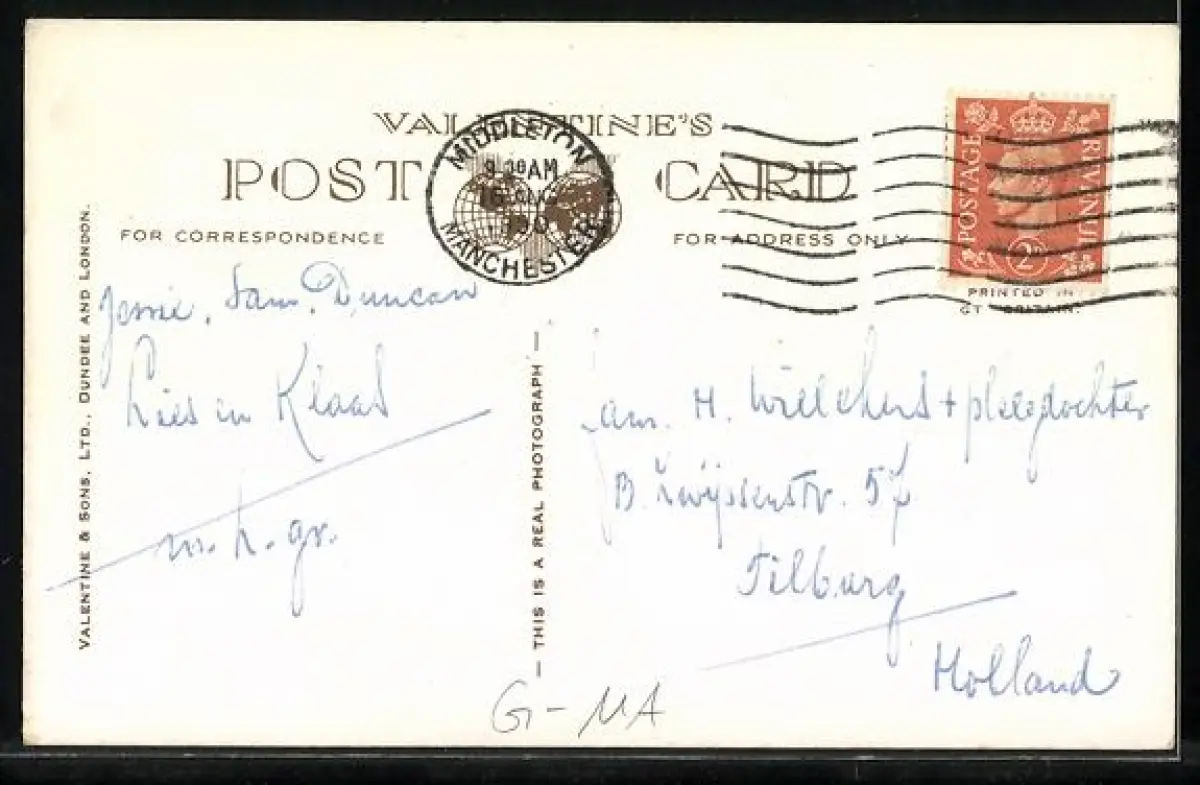 VALENTINE'S
POST CARD
FOR CORRESPONDENCE
FOR ADDRESS ONLY
MIDDLETON
MANCHESTER
POSTAGE REVENUE
2D
PRINTED IN
GT. BRITAIN.
VALENTINE & SONS, LTD., DUNDEE AND LONDON.
Jessie, Sam, Duncan
Lies en Klaas
m. h. gr.
— THIS IS A REAL PHOTOGRAPH —
Fam. H. + pleegdochter
B. Zwijsenstr. 57
Tilburg
Holland
G-MA